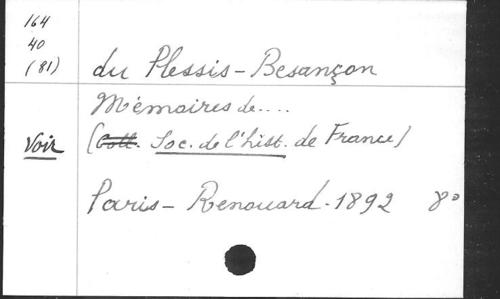 164
40
(81)
du Plessis-Besançon
Mémoires de....
Voir
(Coll. Soc. de l'hist. de France)
Paris - Renouard - 1892 8°